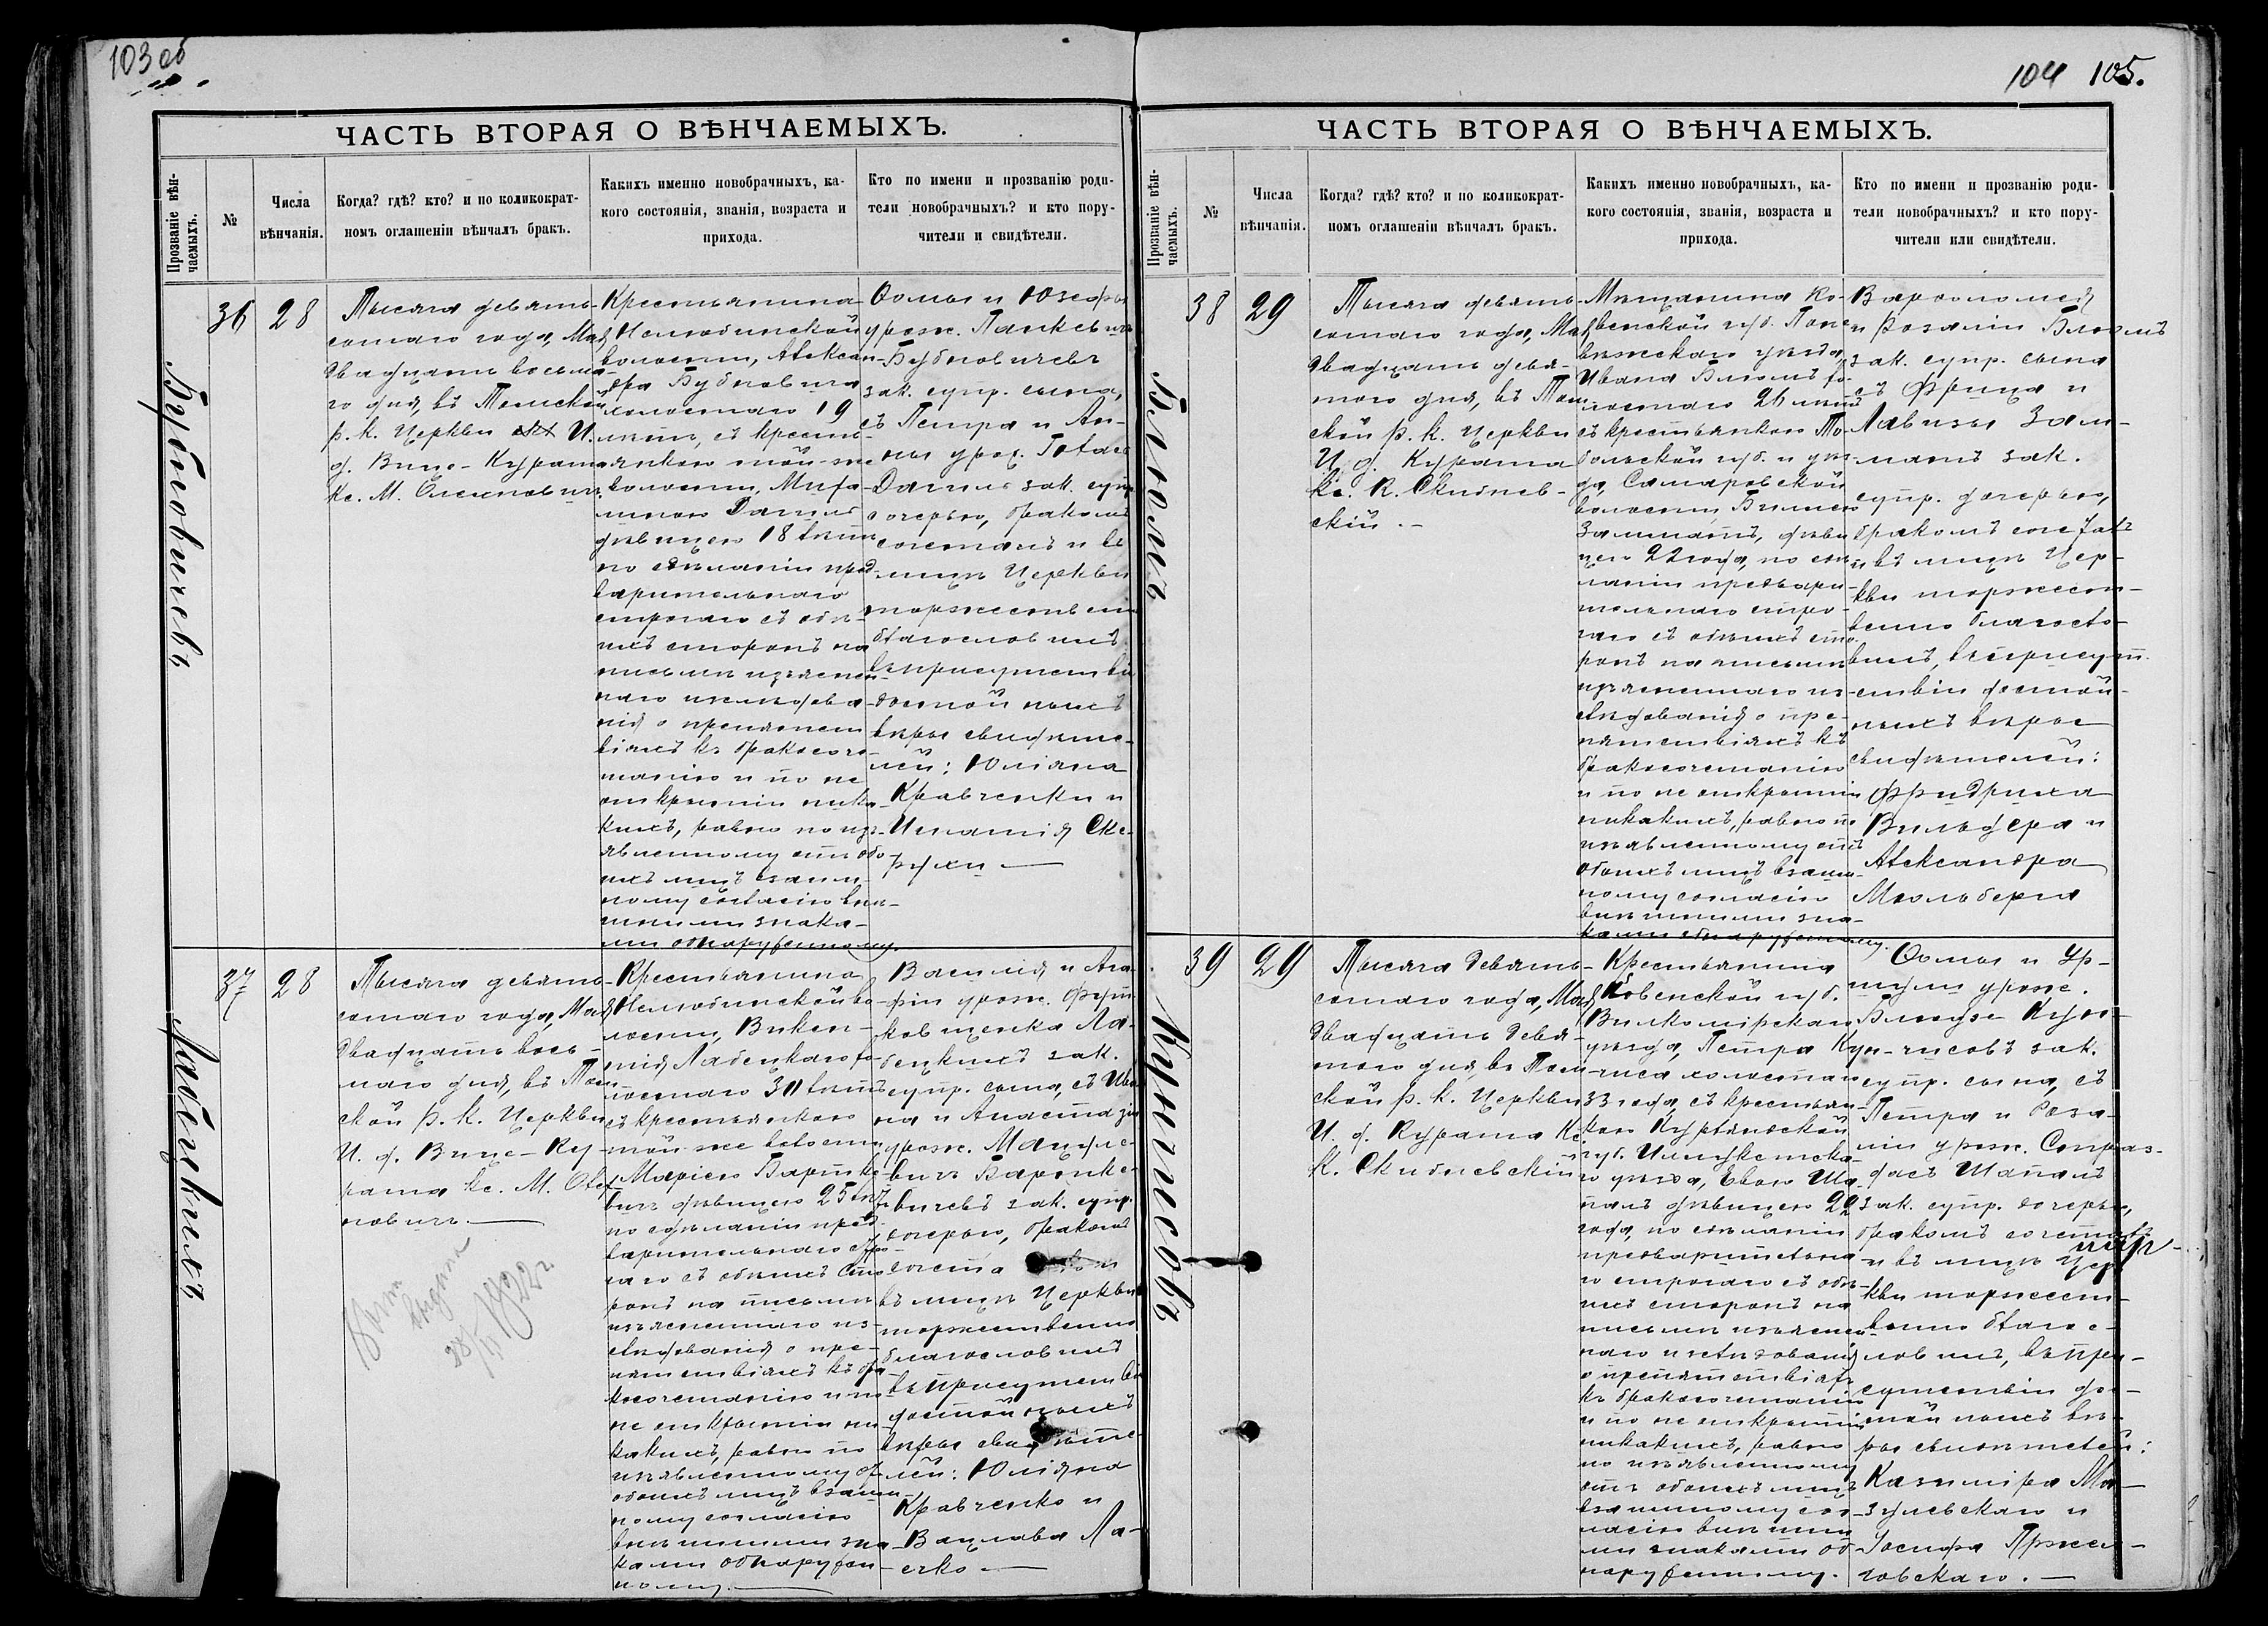 103 об
ЧАСТЬ ВТОРАЯ О ВѢНЧАЕМЫХЪ.
Прозваніе вѣн-
чаемыхъ.
№
Числа
вѣнчанія.
Когда? гдѣ? кто? и по коликократ-
номъ оглашеніи вѣнчалъ бракъ.
Какихъ именно новобрачныхъ, ка-
кого состоянія, званія, возраста и
прихода.
Кто по имени и прозванію роди-
тели новобрачныхъ? и кто пору-
чители и свидѣтели.
Бубновичевъ
36
28
Тысяча девять-
сотаго года, Мая
двадцать восьма-
го дня, въ Томской
р. к. Церкви И.
д. Вице-Курата
Кс. М. Олехновичъ.
Крестьянина
Нелюбинской
волости, Алексан-
дра Бубновича
холостаго 19
лѣтъ, съ кресть-
янкою той-же
волости,
дѣвицею 18 лѣтъ
по сдѣланіи пред-
варительнаго
строгаго съ обѣ-
ихъ сторонъ на
письмѣ изъяснен-
наго изслѣдова-
нія о препятст-
віяхъ къ бракосоче-
танію и по не
открытіи ника-
кихъ, равно по изъ-
явленному отъ обо-
ихъ лицъ взаим-
ному согласію внѣ-
шними знака-
ми обнаруженному.
Ѳомы и Юзефы
урожд.
Бубновичевъ
зак. супр. сына,
съ Петра и Ан-
ны урожд.
зак. супр.
дочерью, бракомъ
сочеталъ и въ
лицѣ Церкви
торжественно
благословилъ
въ присутствіи
достойныхъ
вѣры свидѣте-
лей: Юліана
Кравченки и
Игнатія Ске-
рухи —
Лабецкихъ
37
28
Тысяча девять-
сотаго года, Мая
двадцать вось-
маго дня, въ Том-
ской р. к. Церкви
И. д. Вице-Ку-
рата Кс. М. Олех-
новичъ. —
выдана
28/II 1922 г
Крестьянина
Нелюбинской во-
лости, Викен-
тія Лабецкаго хо-
лостаго 30 лѣтъ
съ крестьянкою
той-же волости
Маріею Бартке-
вичъ дѣвицею 25 лѣтъ
по сдѣланіи пред-
варительнаго стро-
гаго съ обѣихъ сто-
ронъ на письмѣ
изъясненнаго из-
слѣдованія о пре-
пятствіяхъ къ бра-
косочетанію и по
не открытіи ни-
какихъ, равно по
изъявленному отъ
обоихъ лицъ взаим-
ному согласію
внѣшними зна-
ками обнаружен-
ному. —
Василія и Ага-
фіи урожд.
Ла-
бецкихъ зак.
супр. сына, съ Ива-
на и Анастазіи
урожд.
Бартке-
вичевъ зак. супр.
дочерью, бракомъ
сочеталъ и
въ лицѣ Церкви
торжественно
благословилъ
въ присутствіи
достойныхъ
вѣры свидѣте-
лей: Юліана
Кравченко и
Вацлава Ла-
сечко —
104 105.
ЧАСТЬ ВТОРАЯ О ВѢНЧАЕМЫХЪ.
Прозваніе вѣн-
чаемыхъ.
№
Числа
вѣнчанія.
Когда? гдѣ? кто? и по коликократ-
номъ оглашеніи вѣнчалъ бракъ.
Какихъ именно новобрачныхъ, ка-
кого состоянія, званія, возраста и
прихода.
Кто по имени и прозванію роди-
тели новобрачныхъ? и кто пору-
чители или свидѣтели.
Блюмъ
38
29
Тысяча девять-
сотаго года, Мая
двадцать девя-
таго дня, въ Том-
ской р. к. Церкви
И. д. Курата
Кс. К. Скибнев-
скій. —
Мѣщанина Ко-
венской губ. Поне-
вѣжскаго уѣзда,
Ивана Блюмъ хо-
лостаго 26 лѣтъ
съ крестьянкою То-
больской губ. и уѣз-
да, Самаровской
волости,
дѣви-
цею 22 года, по сдѣ-
ланіи предвари-
тельнаго стро-
гаго съ обѣихъ сто-
ронъ на письмѣ
изъясненнаго из-
слѣдованія о пре-
пятствіяхъ къ
бракосочетанію
и по не открытіи
никакихъ, равно по
изъявленному отъ
обоихъ лицъ взаим-
ному согласію
внѣшними зна-
ками обнаруженному.
Варѳоломея
и Розаліи Блюмъ
зак. супр. сына
съ Фрица и
Лавизы Зал-
манъ зак.
супр. дочерью,
бракомъ сочеталъ
и въ лицѣ Цер-
кви торжест-
венно благосло-
вилъ, въ присут-
ствіи достой-
ныхъ вѣры
свидѣтелей:
Фридриха
Вильдера и
Александра
Мюльберга
Купчисовъ
39
29
Тысяча девять-
сотаго года, Мая
двадцать девя-
таго дня, въ Том-
ской р. к. Церкви
И. д. Курата Кс.
К. Скибневскій
Крестьянина
Ковенской губ.
Вилкомірскаго
уѣзда, Петра Куп-
чиса холостаго
33 года, съ крестьян-
кою Курляндской
губ. Иллукстска-
го уѣзда, Евою Ша-
палъ дѣвицею 22
года, по сдѣланіи
предварительна-
го строгаго съ обѣ-
ихъ сторонъ на
письмѣ изъяснен-
наго изслѣдованія
о препятствіяхъ
къ бракосочетанію
и по не открытіи
никакихъ, равно
по изъявленному
отъ обоихъ лицъ
взаимному сог-
ласію внѣшни-
ми знаками об-
наруженному.
Ѳомы и Ур-
шули урожд.
Куп-
чисовъ зак.
супр. сына, съ
Петра и Роза-
ліи урожд.
Шапалъ
зак. супр. дочерью,
бракомъ сочеталъ
и въ лицѣ Цер-
кви торжест-
венно благо-
словилъ, въ при-
сутствіи дос-
тойныхъ вѣ-
ры свидѣтелей:
Казиміра Ма-
зулевскаго и
Іосифа